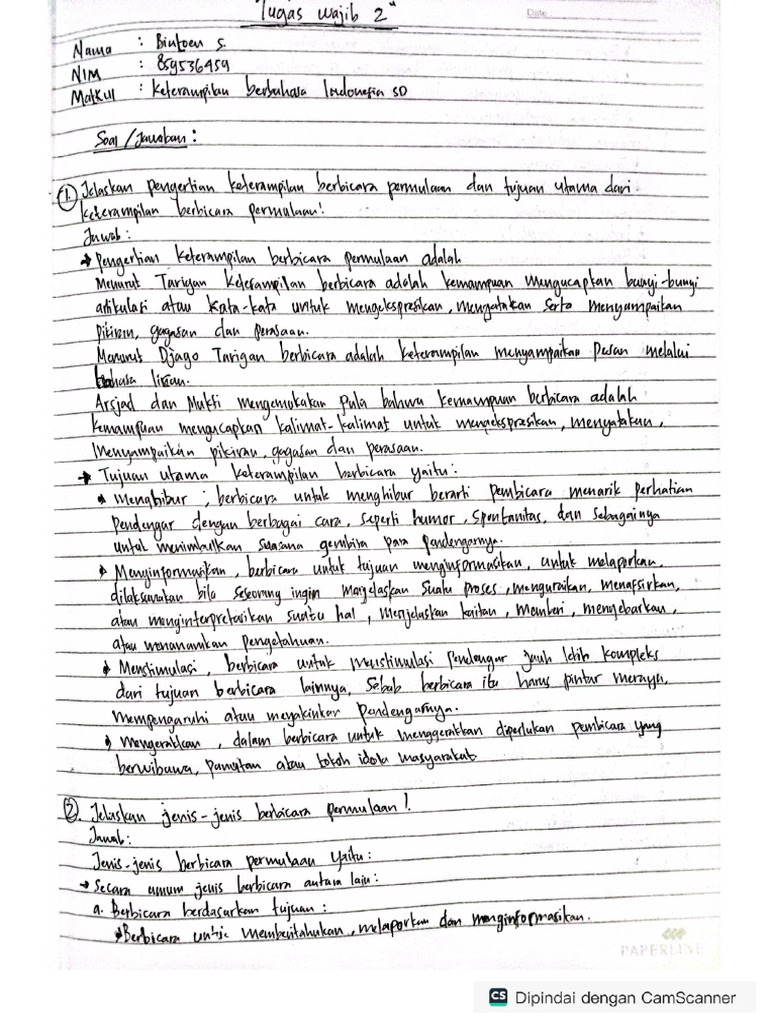 "Tugas Wajib 2"
Date
Nama : Bintoen S.
NIM : 859536459
Matkul : Keterampilan berbahasa Indonesia SD
Soal / Jawaban :
1. Jelaskan pengertian keterampilan berbicara permulaan dan tujuan utama dari
keterampilan berbicara permulaan!
Jawab :
→ Pengertian keterampilan berbicara permulaan adalah
Menurut Tarigan keterampilan berbicara adalah kemampuan mengucapkan bunyi-bunyi
artikulasi atau kata-kata untuk mengekspresikan, mengatakan serta menyampaikan
pikiran, gagasan dan perasaan.
Menurut Djago Tarigan berbicara adalah keterampilan menyampaikan pesan melalui
bahasa lisan.
Arsjad dan Mukti mengemukakan pula bahwa kemampuan berbicara adalah
kemampuan mengucapkan kalimat-kalimat untuk mengekspresikan, menyatakan,
menyampaikan pikiran, gagasan dan perasaan.
→ Tujuan utama keterampilan berbicara yaitu :
• Menghibur ; berbicara untuk menghibur berarti pembicara menarik perhatian
pendengar dengan berbagai cara, seperti humor, spontanitas, dan sebagainya
untuk menimbulkan suasana gembira para pendengarnya.
• Menginformasikan, berbicara untuk tujuan menginformasikan, untuk melaporkan,
dilaksanakan bila seseorang ingin menjelaskan suatu proses, menguraikan, menafsirkan,
atau menginterpretasikan suatu hal, menjelaskan kaitan, memberi, mengebarkan,
atau menanamkan pengetahuan.
• Menstimulasi, berbicara untuk menstimulasi pendengar jauh lebih kompleks
dari tujuan berbicara lainnya, Sebab berbicara itu harus pintar merayu,
mempengaruhi atau meyakinkan pendengarnya.
• mengerakkan, dalam berbicara untuk menggerakkan diperlukan pembicara yang
berwibawa, panutan atau tokoh idola masyarakat
2. Jelaskan jenis-jenis berbicara permulaan!
Jawab :
Jenis-jenis berbicara permulaan yaitu :
→ Secara umum jenis berbicara antara lain :
a. Berbicara berdasarkan tujuan :
• Berbicara untuk memberitahukan, melaporkan dan menginformasikan.
PAPERLINE
CS Dipindai dengan CamScanner